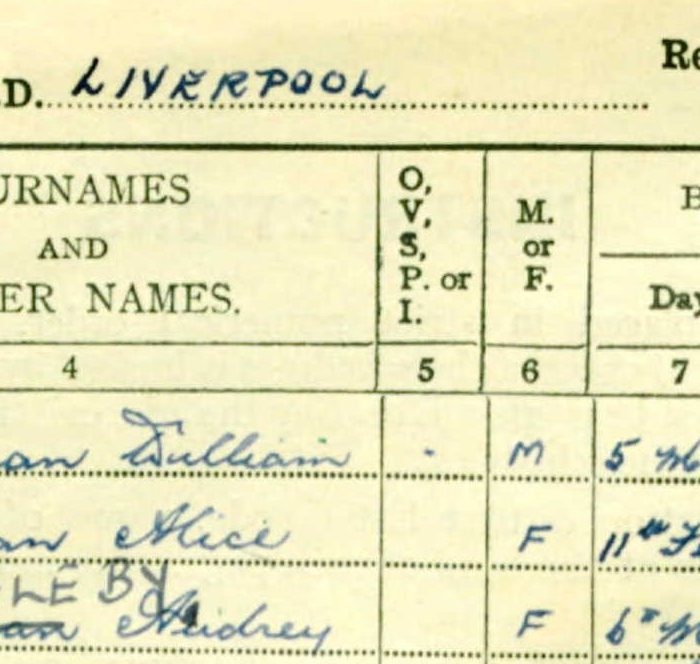 Re
D. LIVERPOOL
URNAMES
AND
ER NAMES.
O,
V,
S,
P. or
I.
M.
or
F.
B
Day
4
5
6
7
an William - M 5 M
an Alice F 11th F
LEBY
an Audrey F 6th M